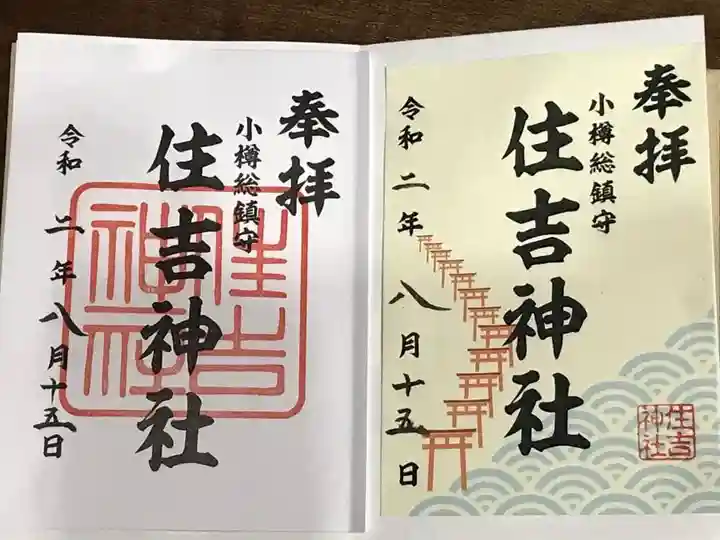 奉拝
小樽総鎮守
住吉神社
令和二年八月十五日
住吉神社
奉拝
小樽総鎮守
住吉神社
令和二年八月十五日
住吉
神社